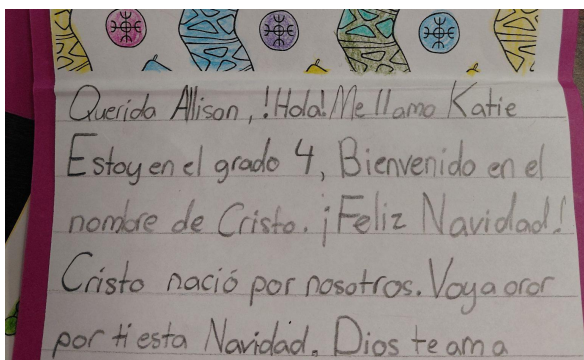 Querida Allison, !Hola! Me llamo Katie
Estoy en el grado 4, Bienvenido en el
nombre de Cristo. ¡Feliz Navidad!
Cristo nació por nosotros. Voy a oror
por ti esta Navidad. Dios te ama